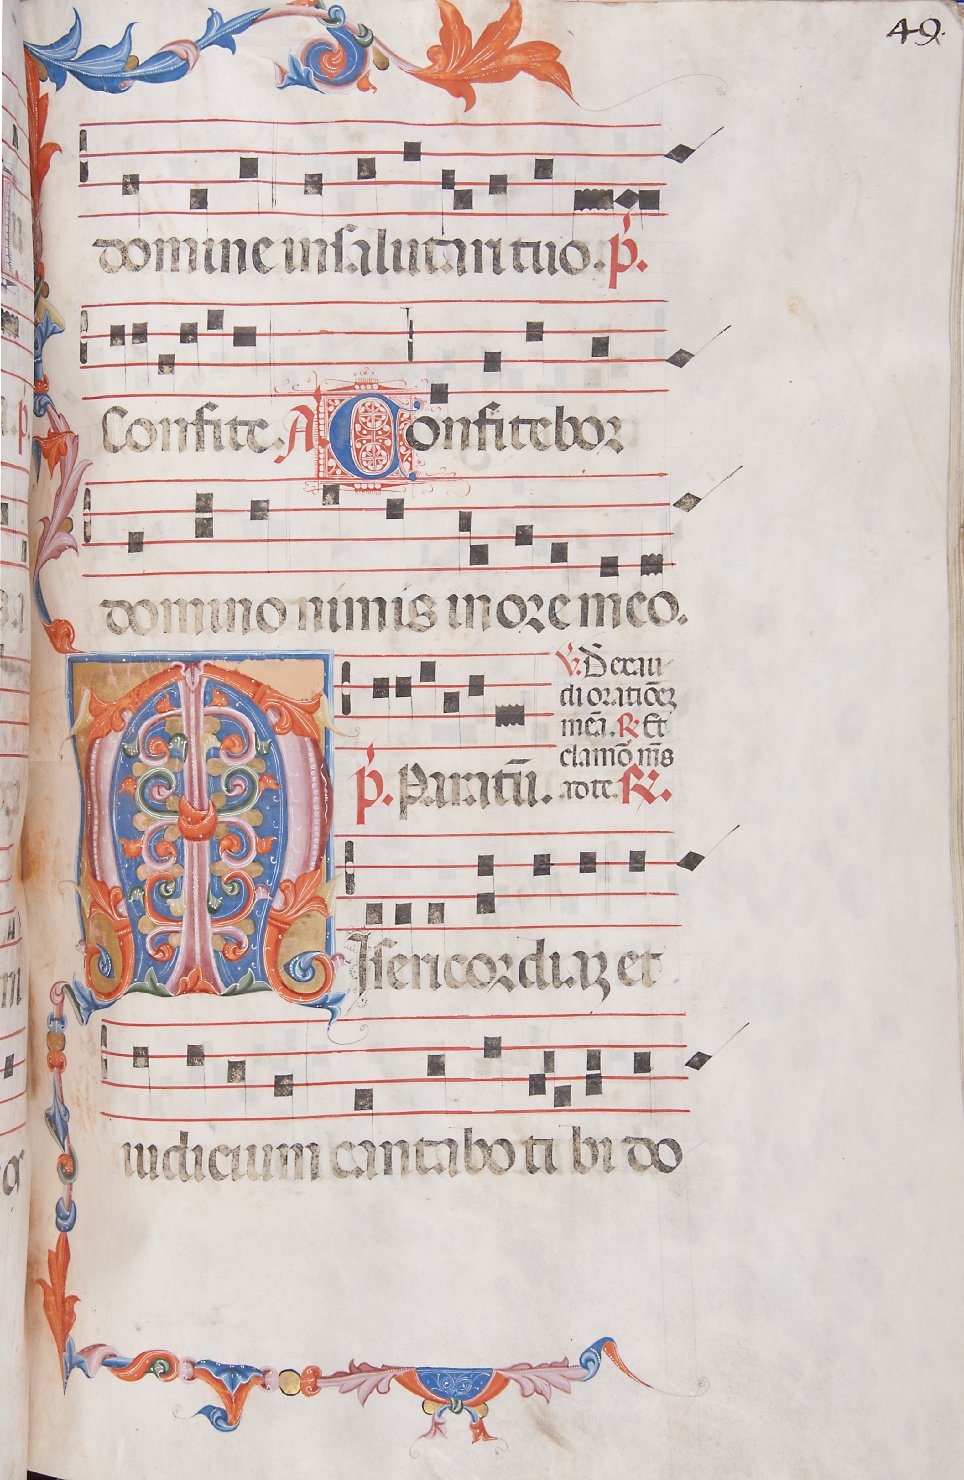 49.
domine in salutari tuo. p̄.
Confite. A. Confitebor
domino nimis in ore meo.
V̄. D̄ exau
di oratiōeꝫ
meā. R̄ Et
clamō mẽs
ad te. R̄.
p̄. Paratū.
Misericordiaꝫ et
iudicium cantabo tibi do